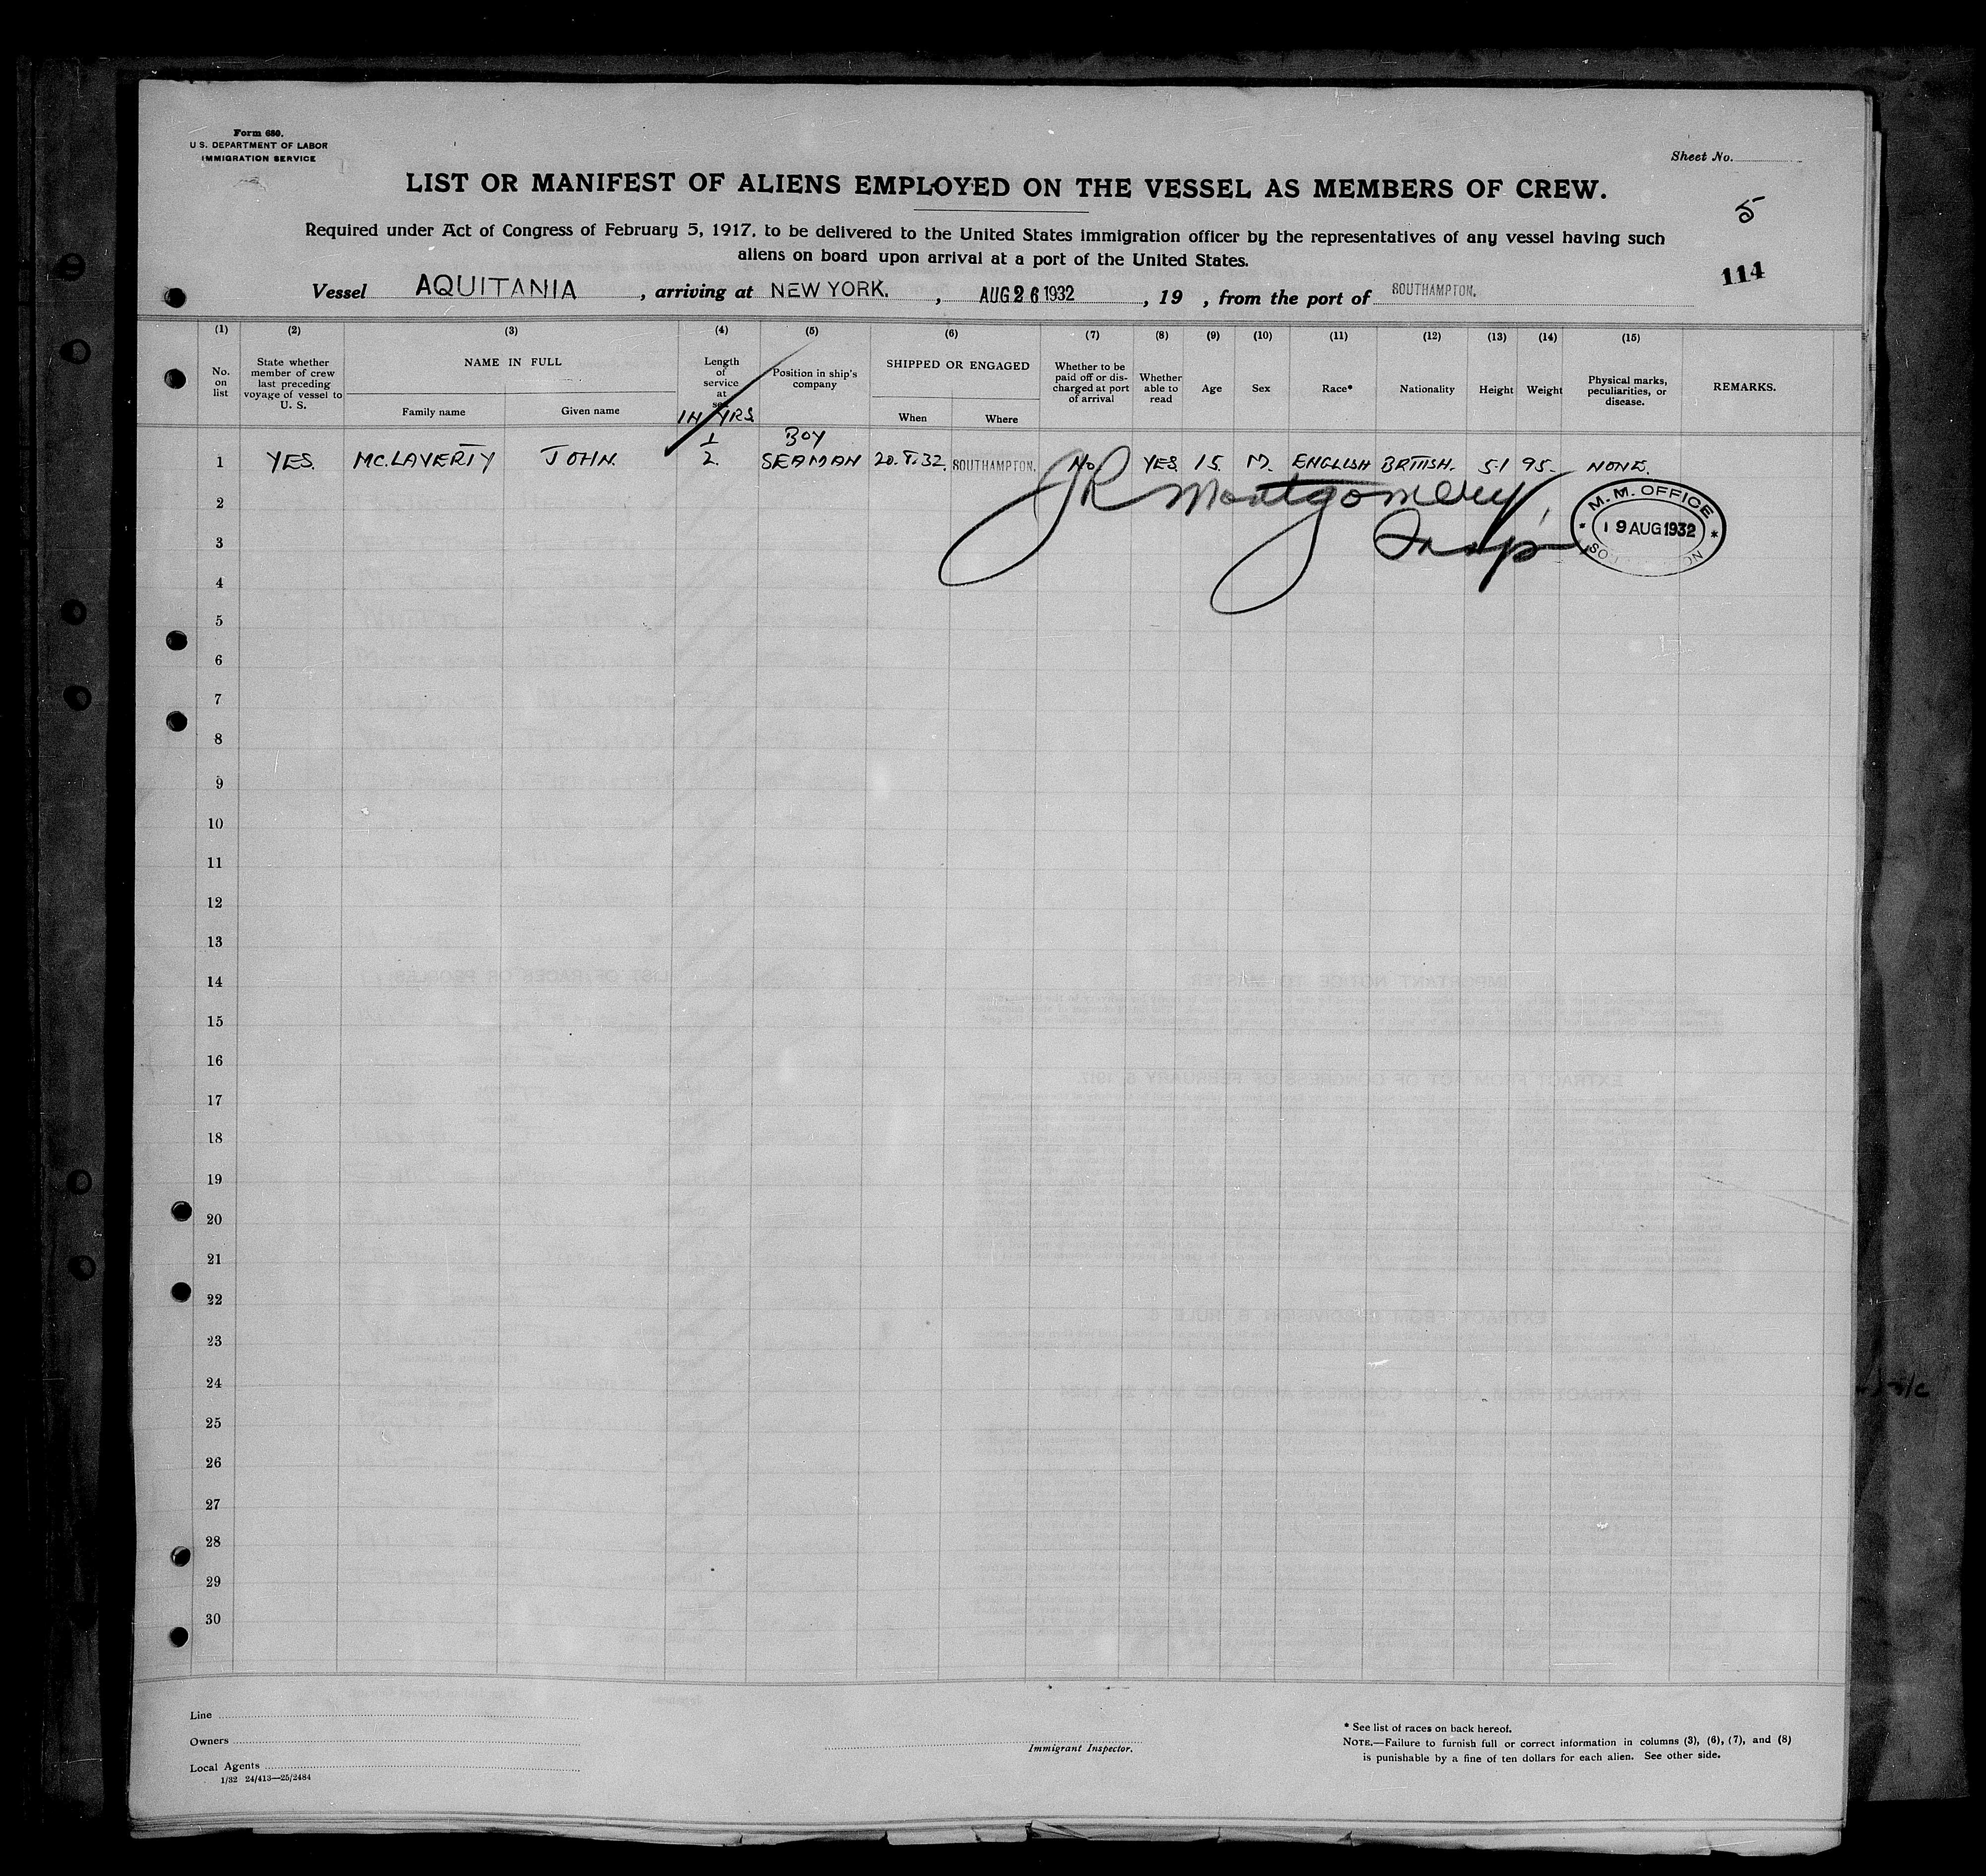 Form 680.
U. S. DEPARTMENT OF LABOR
IMMIGRATION SERVICE
Sheet No.
LIST OR MANIFEST OF ALIENS EMPLOYED ON THE VESSEL AS MEMBERS OF CREW.
5
Required under Act of Congress of February 5, 1917, to be delivered to the United States immigration officer by the representatives of any vessel having such
aliens on board upon arrival at a port of the United States.
114
Vessel AQUITANIA, arriving at NEW YORK., AUG 26 1932, 19 , from the port of SOUTHAMPTON.
(1) (2) (3) (4) (5) (6) (7) (8) (9) (10) (11) (12) (13) (14) (15)
No. on list
State whether member of crew last preceding voyage of vessel to U. S.
NAME IN FULL
Family name Given name
Length of service at sea
IN YRS
Position in ship's company
SHIPPED OR ENGAGED
When Where
Whether to be paid off or discharged at port of arrival
Whether able to read
Age
Sex
Race*
Nationality
Height
Weight
Physical marks, peculiarities, or disease.
REMARKS.
1 YES. MC.LAVERTY JOHN. 1/2 BOY SEAMAN 20.8.32. SOUTHAMPTON. No YES 15. M. ENGLISH BRITISH. 5-1 95- NONE.
JR Montgomery
Insp
M. M. OFFICE
19 AUG 1932
2
3
4
5
6
7
8
9
10
11
12
13
14
15
16
17
18
19
20
21
22
23
24
25
26
27
28
29
30
Line
Owners
Local Agents
1/32 24/413—25/2484
Immigrant Inspector.
* See list of races on back hereof.
NOTE.—Failure to furnish full or correct information in columns (3), (6), (7), and (8)
is punishable by a fine of ten dollars for each alien. See other side.